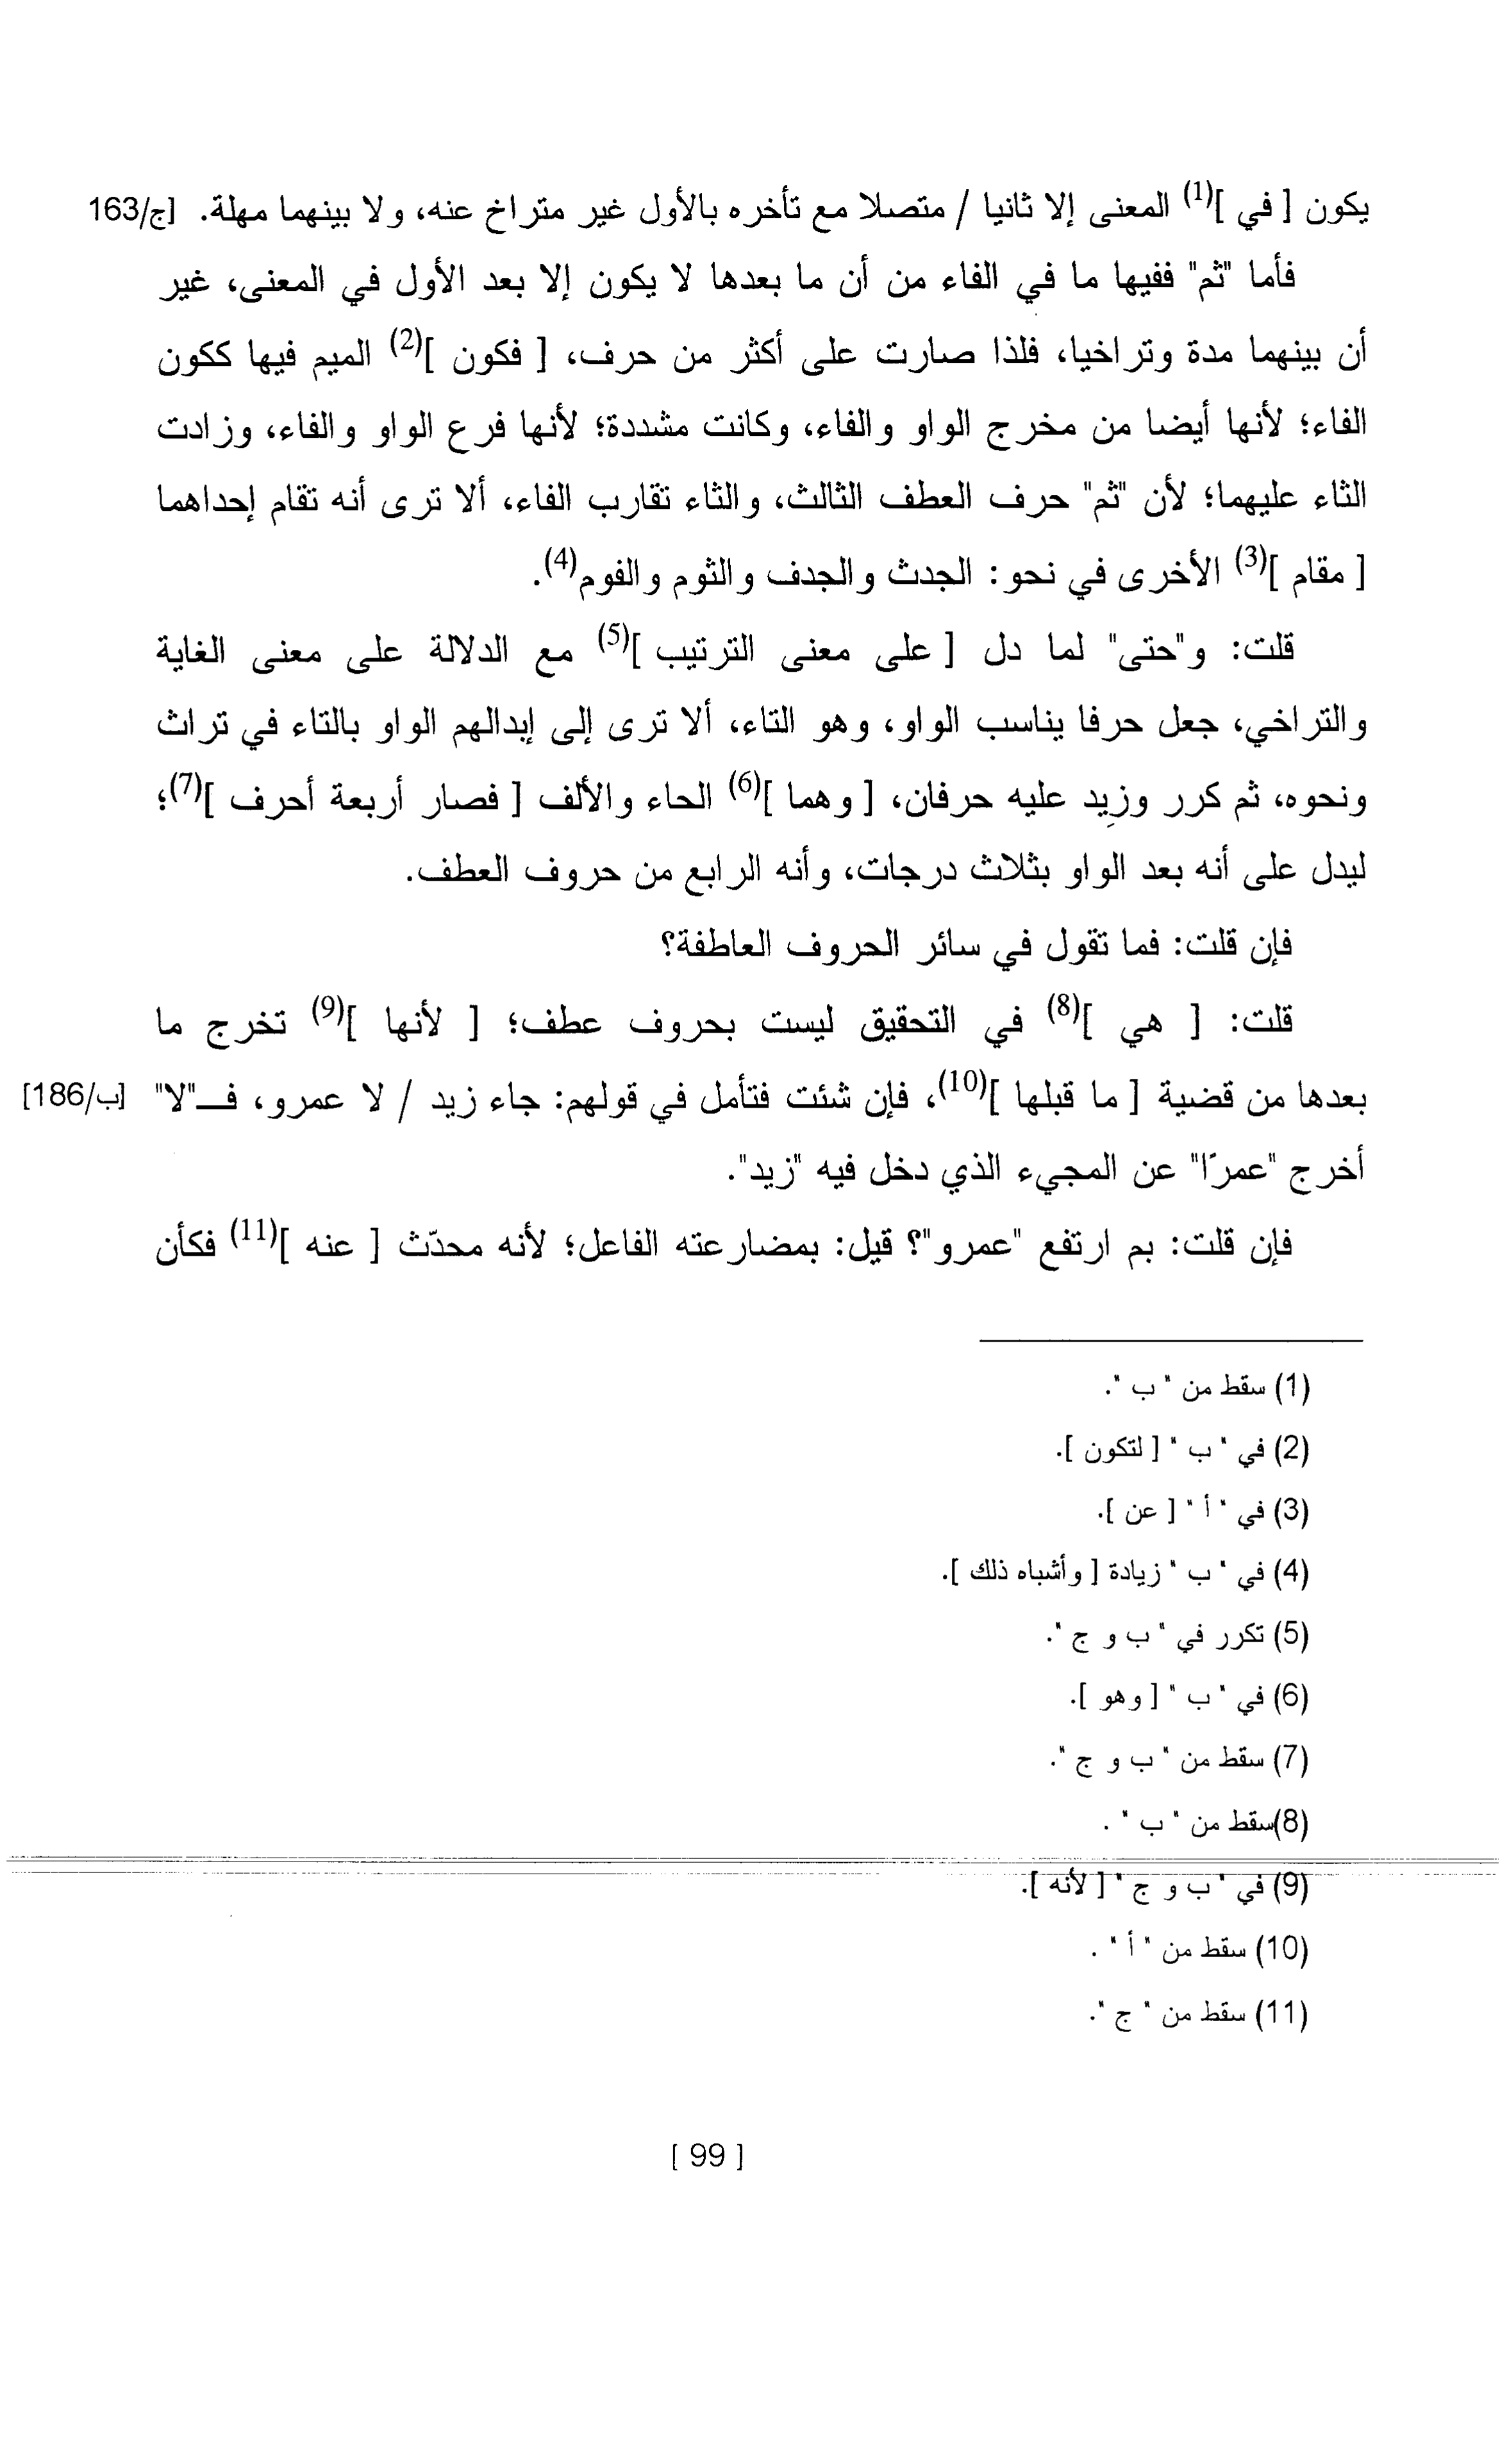 يكون [ في ](1) المعنى إلا ثانيا / متصلا مع تأخره بالأول غير متراخ عنه، ولا بينهما مهلة. [ج/163
فأما "ثم" ففيها ما في الفاء من أن ما بعدها لا يكون إلا بعد الأول في المعنى، غير
أن بينهما مدة وتراخيا، فلذا صارت على أكثر من حرف، [ فكون ](2) الميم فيها ككون
الفاء؛ لأنها أيضا من مخرج الواو والفاء، وكانت مشددة؛ لأنها فرع الواو والفاء، وزادت
الثاء عليهما؛ لأن "ثم" حرف العطف الثالث، والثاء تقارب الفاء، ألا ترى أنه تقام إحداهما
[ مقام ](3) الأخرى في نحو: الجدث والجدف والثوم والفوم(4).
قلت: و"حتى" لما دل [ على معنى الترتيب ](5) مع الدلالة على معنى الغاية
والتراخي، جعل حرفا يناسب الواو، وهو التاء، ألا ترى إلى إبدالهم الواو بالتاء في تراث
ونحوه، ثم كرر وزِيد عليه حرفان، [ وهما ](6) الحاء والألف [ فصار أربعة أحرف ](7)؛
ليدل على أنه بعد الواو بثلاث درجات، وأنه الرابع من حروف العطف.
فإن قلت: فما تقول في سائر الحروف العاطفة؟
قلت: [ هي ](8) في التحقيق ليست بحروف عطف؛ [ لأنها ](9) تخرج ما
بعدها من قضية [ ما قبلها ](10)، فإن شئت فتأمل في قولهم: جاء زيد / لا عمرو، فــ"لا" [ب/186]
أخرج "عمرًا" عن المجيء الذي دخل فيه "زيد".
فإن قلت: بم ارتفع "عمرو"؟ قيل: بمضارعته الفاعل؛ لأنه محدّث [ عنه ](11) فكأن
(1) سقط من " ب ".
(2) في " ب " [ لتكون ].
(3) في " أ " [ عن ].
(4) في " ب " زيادة [ وأشباه ذلك ].
(5) تكرر في " ب و ج ".
(6) في " ب " [ وهو ].
(7) سقط من " ب و ج ".
(8)سقط من " ب " .
(9) في " ب و ج " [ لأنه ].
(10) سقط من " أ " .
(11) سقط من " ج ".
[ 99 ]